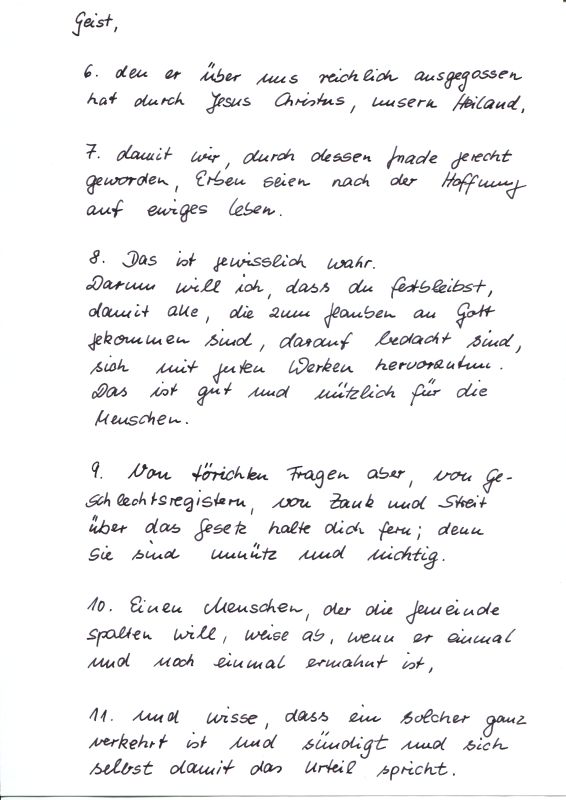 Geist,
6. den er über uns reichlich ausgegossen
hat durch Jesus Christus, unsern Heiland,
7. damit wir, durch dessen Gnade gerecht
geworden, Erben seien nach der Hoffnung
auf ewiges Leben.
8. Das ist gewisslich wahr.
Darum will ich, dass du festbleibst,
damit alle, die zum Glauben an Gott
gekommen sind, darauf bedacht sind,
sich mit guten Werken hervorzutun.
Das ist gut und nützlich für die
Menschen.
9. Von törichten Fragen aber, von Ge-
schlechtsregistern, von Zank und Streit
über das Gesetz halte dich fern; denn
sie sind unnütz und nichtig.
10. Einen Menschen, der die Gemeinde
spalten will, weise ab, wenn er einmal
und noch einmal ermahnt ist,
11. und wisse, dass ein solcher ganz
verkehrt ist und sündigt und sich
selbst damit das Urteil spricht.